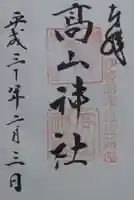 奉拝
高山神社
平成三十年二月三日